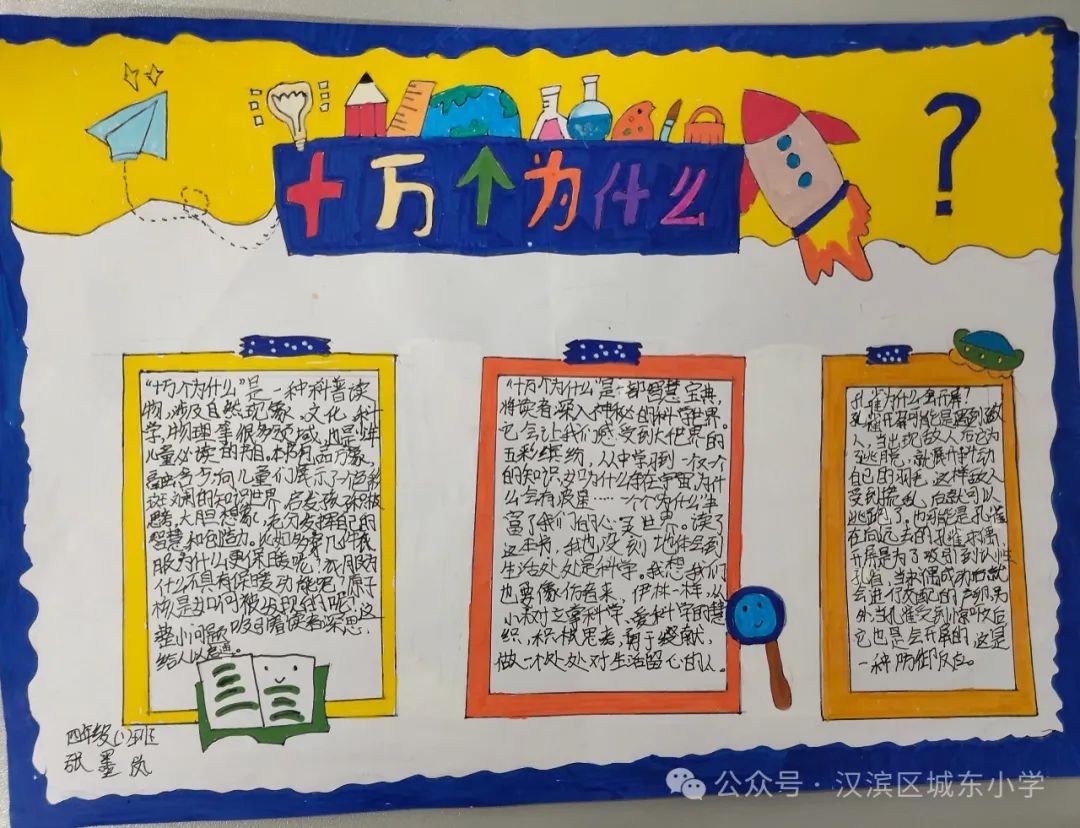 十万个为什么
?
“十万个为什么”是一种科普读
物,涉及自然现象、文化、科
学,物理等很多领域,也是少年
儿童必读的书目。本书有
向儿童们展示了一个色彩
斑斓的知识世界,启发孩子积极
思考,大胆想象,充分发挥自己的
智慧和创造力。比如多穿几件衣
服为什么更保暖呢,衣服为
什么不具有保暖功能呢,原子
核是如何被发现的呢?这
些小问题吸引着读者深思,
给人以启迪。
“十万个为什么”是一部智慧宝典
将读者深入神秘的科学世界。
它会让我们感受到大世界的
五彩缤纷,从中学习到一个又一个
的知识,如为什么存在宇宙,为什
么会有质量……一个个为什么丰
富了我们的内心世界。读了
这本书,我也深刻地体会到
生活处处是科学。我想我们
也要像作者米·伊林一样,从
小树立爱科学、
积极思考,勇于贡献,
做一个处处对生活留心的人。
孔雀为什么会开屏?
孔雀开屏可能是遇到敌
人,当出现敌人后它为
逃脱,就展开抖动
自己的羽毛,这样敌人
受到扰乱,后就可以
逃脱了,也可能是孔雀
在向配
开屏是为了吸引到
孔雀,当求偶成功后就
会进行交配和产卵,另
外当孔雀受到惊吓后
它也是会开屏的,这是
一种防御反应。
四年级(1)班
张墨岚
公众号·汉滨区城东小学